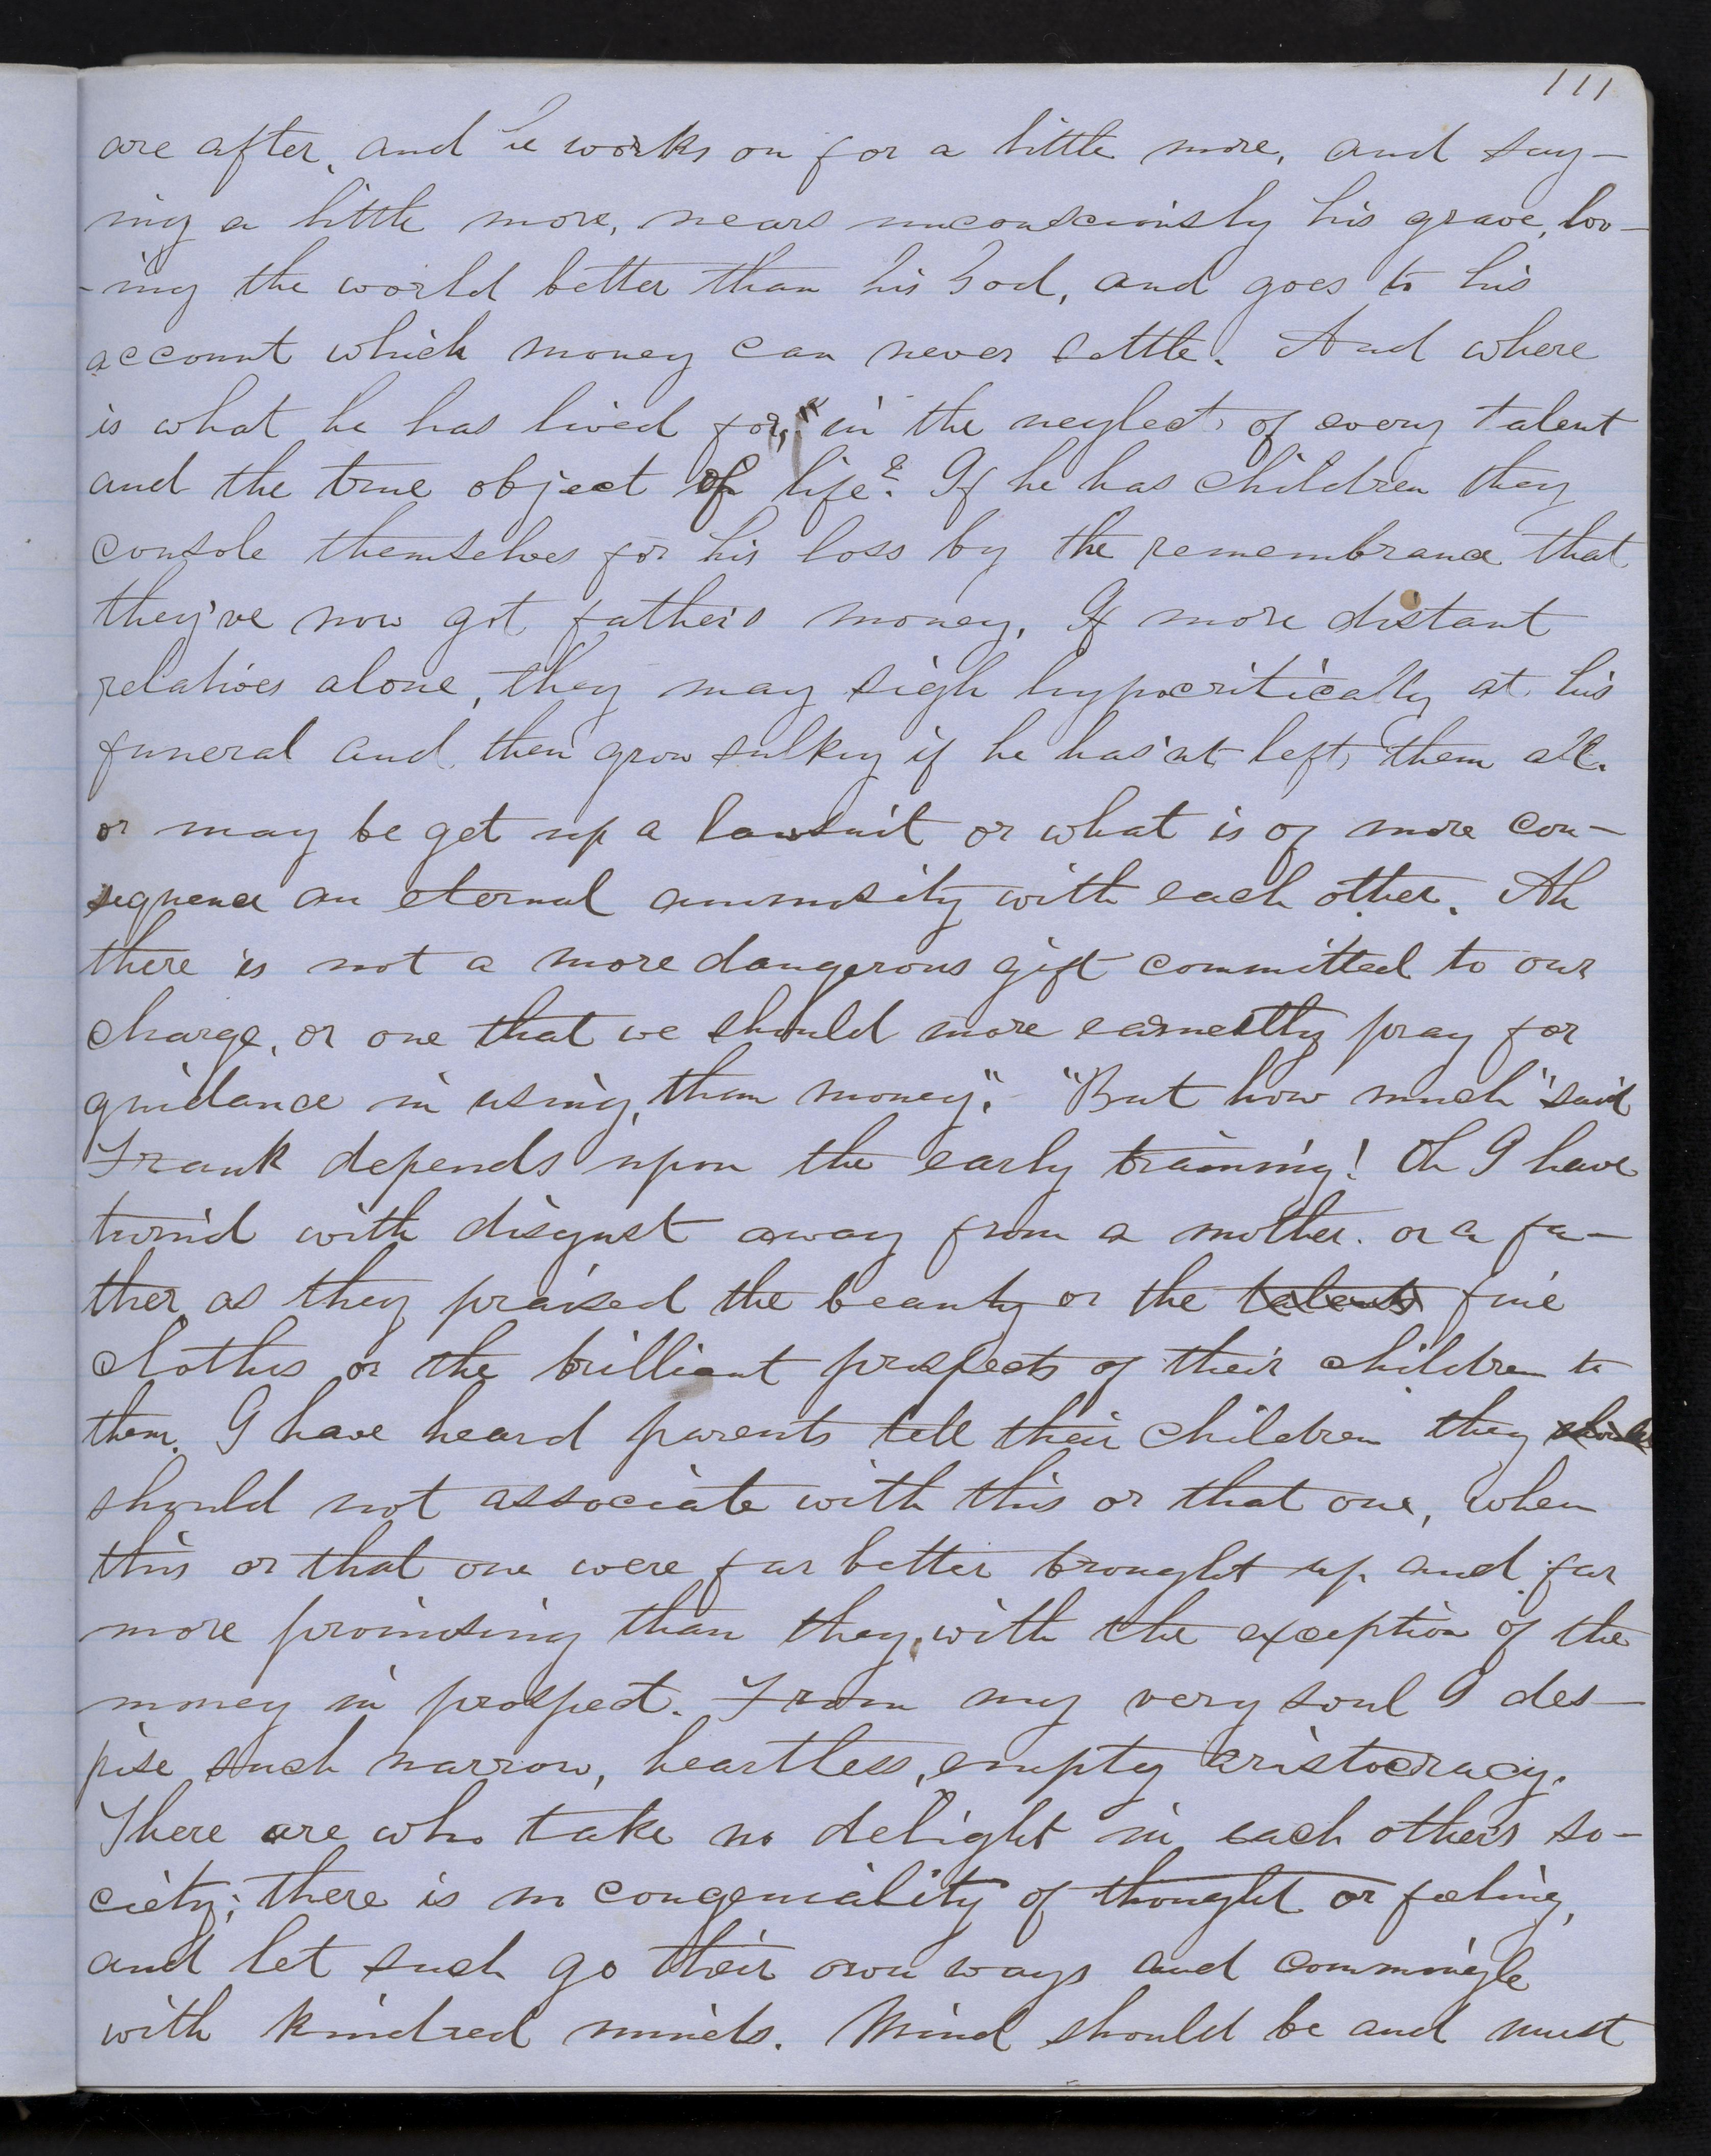 111
are after, and he works on for a little more, and say-
ing a little more, nears unconsciously his grave, lov-
-ing the world better than his God, and goes to his
account which money can never settle. And where
is what he has lived for," in the neglect of every talent
and the true object of life? If he has children they
console themselves for his loss by the remembrance that
they've now got father's money. If more distant
relatives alone, they may sigh hypocritically at his
funeral and then grow sulky if he has'nt left them all.
or may be get up a lawsuit or what is of more con-
sequence an eternal animosity with each other. Ah
there is not a more dangerous gift committed to our
charge, or one that we should more earnestly pray for
guidance in using, than money". "But how much" said
Frank depends upon the early training! Oh I have
turn'd with disgust away from a mother. or a fa-
ther as they praised the beauty or the talents fine
clothes or the brilliant prospects of their children to
them. I have heard parents tell their children they should
should not associate with this or that one, when
this or that one were far better brought up and far
more promising than they, with the exception of the
money in prospect. From my very soul I des-
pise such narrow, heartless, empty aristocracy.
There are who take no delight in each other's so-
ciety; there is no congeniality of thought or feeling,
and let such go their own ways and commingle
with kindred minds. Mind should be and must